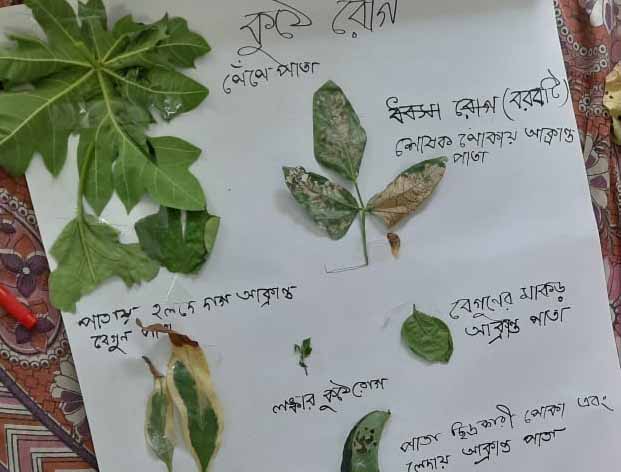 কুষ্ঠে রোগ
পেঁপে পাতা
ধ্বসা রোগ (বরবটি)
শোষক পোকায় আক্রান্ত
পাতা
পাতায় হলদে দাগ আক্রান্ত
বেগুন পাতা
বেগুনের মাকড়
আক্রান্ত পাতা
লঙ্কার কুষ্ঠেরোগ
পাতা ছিদ্রকারী পোকা এবং
লেদায় আক্রান্ত পাতা